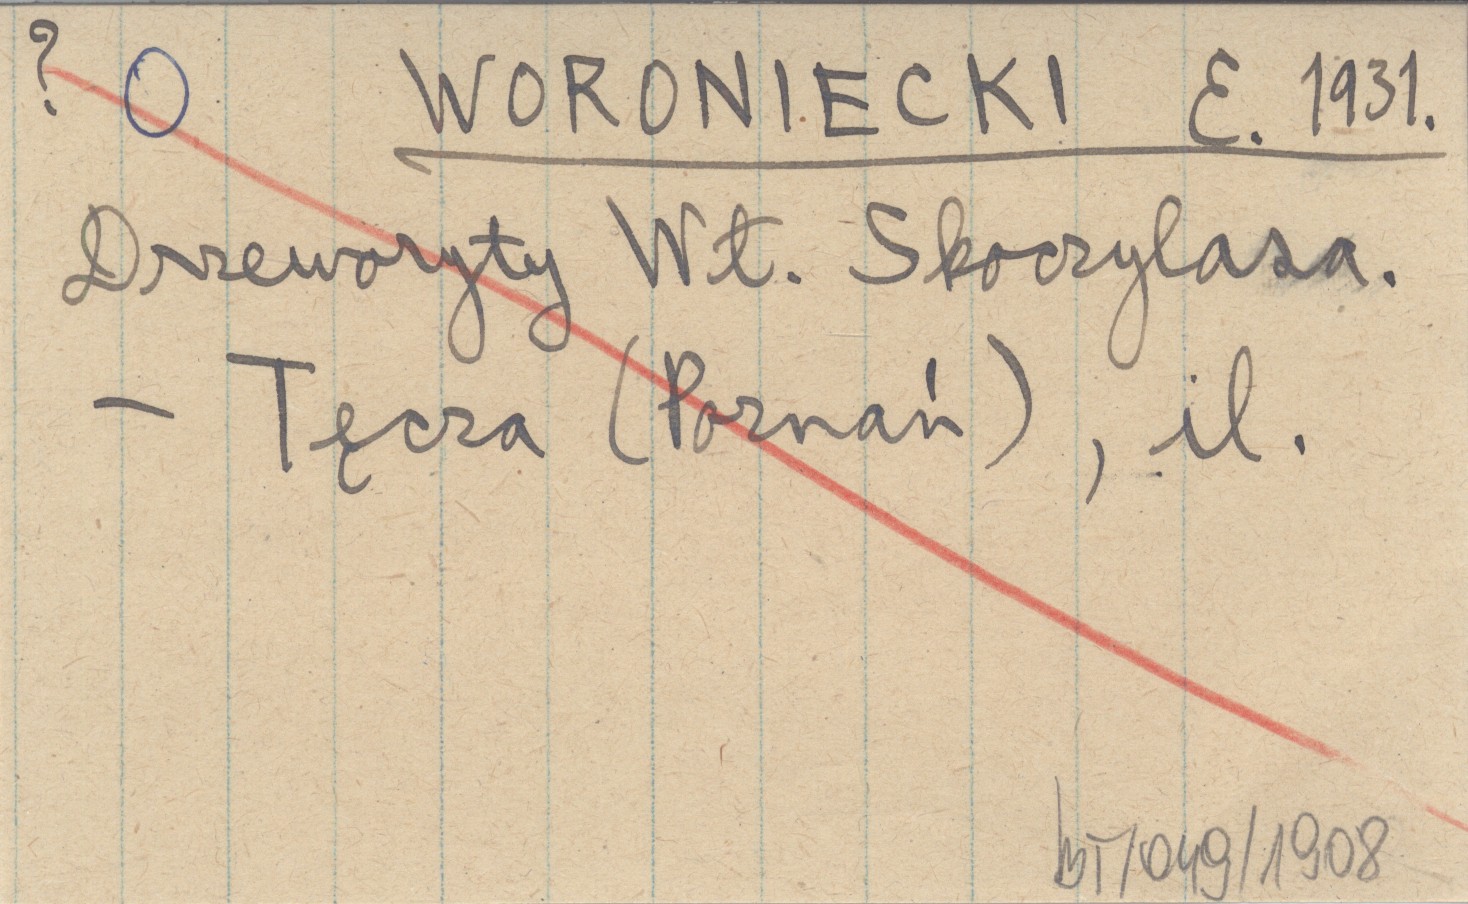 ? O WORONIECKI E. 1931.
Drzeworyty Wł. Skoczylasa.
- Tęcza (Poznań), il.
BT/049/1908